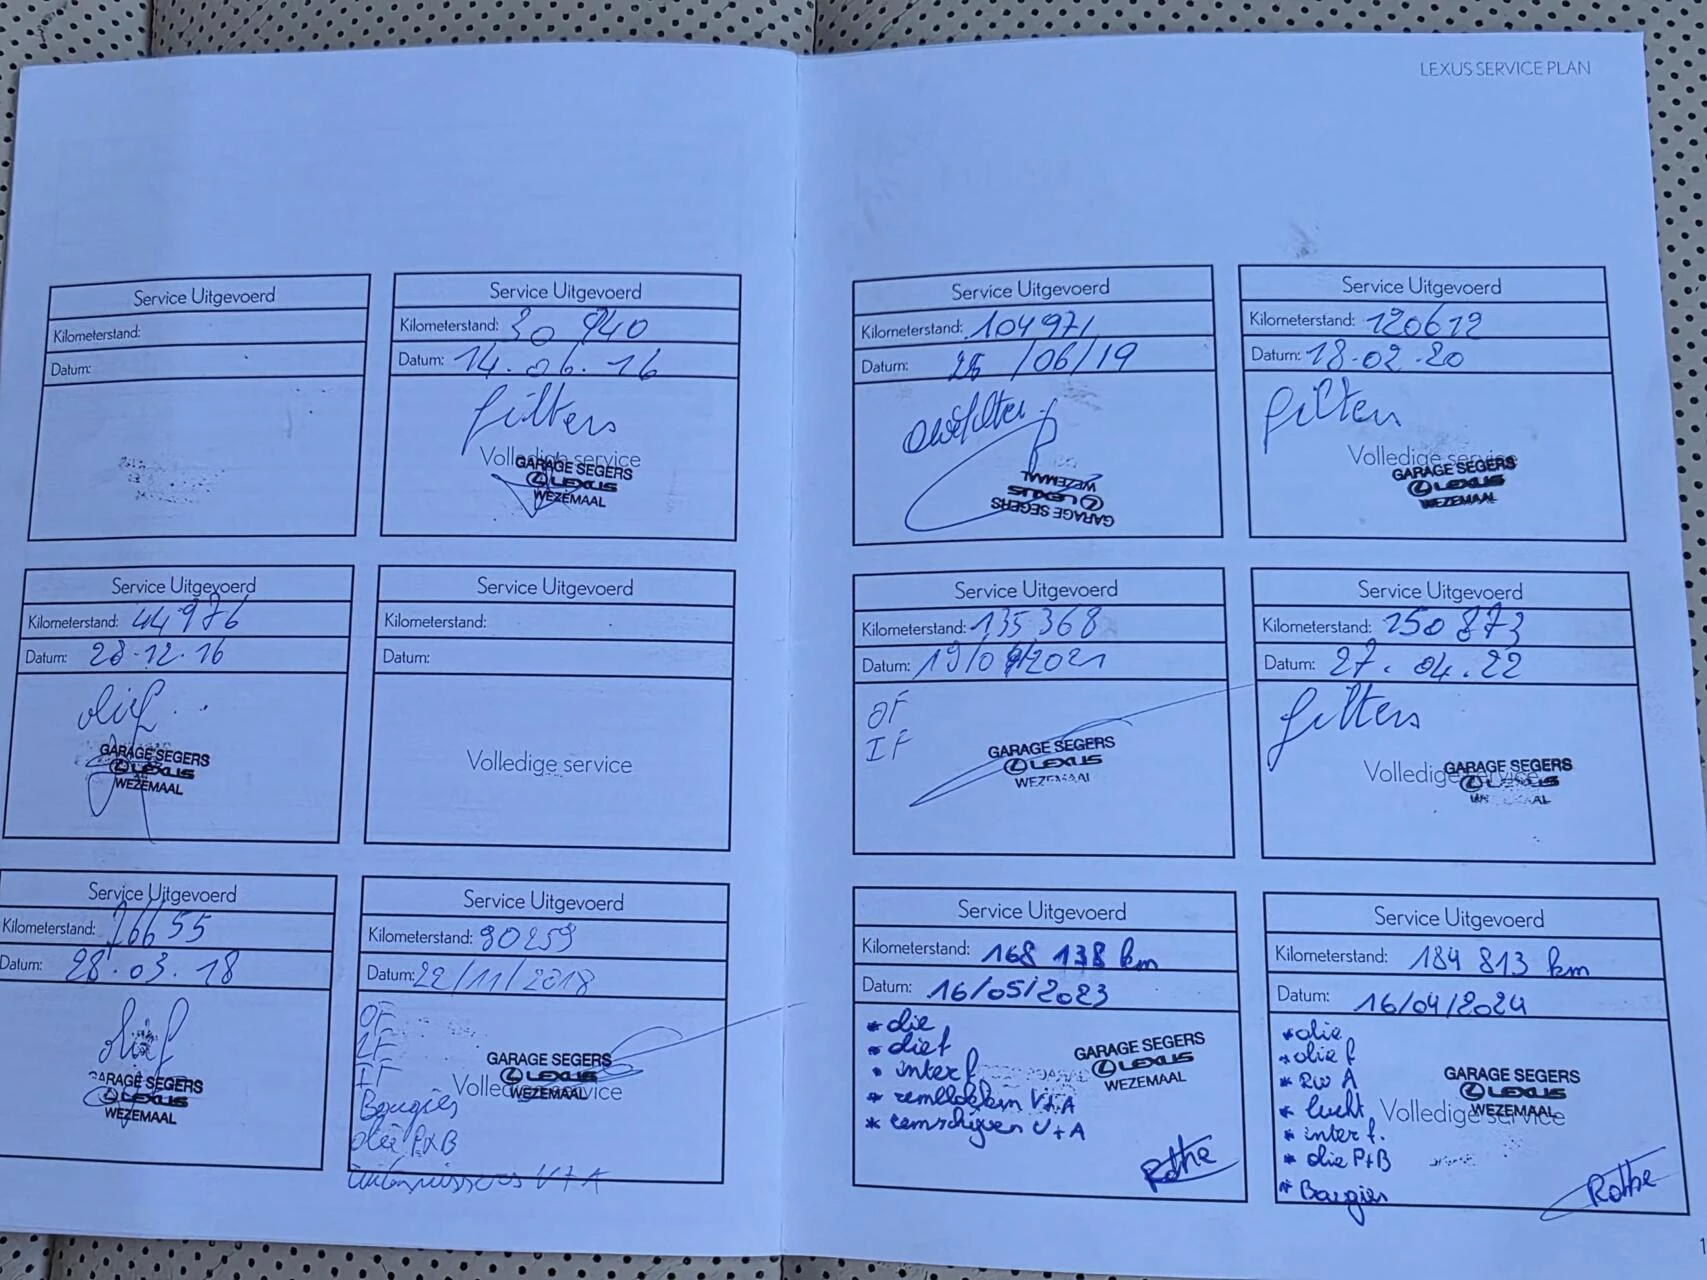 LEXUS SERVICE PLAN
Service Uitgevoerd
Kilometerstand:
Datum:
Service Uitgevoerd
Kilometerstand: 30 940
Datum: 14.06.16
filters
Volledige service
GARAGE SEGERS
LEXUS
WEZEMAAL
Service Uitgevoerd
Kilometerstand: 44976
Datum: 28.12.16
olief
GARAGE SEGERS
LEXUS
WEZEMAAL
Service Uitgevoerd
Kilometerstand:
Datum:
Volledige service
Service Uitgevoerd
Kilometerstand: 76655
Datum: 28.03.18
olief
GARAGE SEGERS
LEXUS
WEZEMAAL
Service Uitgevoerd
Kilometerstand: 90259
Datum: 22/11/2018
OF
LF
IF
Bougies
olie P+B
V+A
Volledige service
GARAGE SEGERS
LEXUS
WEZEMAAL
Service Uitgevoerd
Kilometerstand: 104971
Datum: /06/19
GARAGE SEGERS
LEXUS
WEZEMAAL
Service Uitgevoerd
Kilometerstand: 120612
Datum: 18.02.20
filters
Volledige service
GARAGE SEGERS
LEXUS
WEZEMAAL
Service Uitgevoerd
Kilometerstand: 135 368
Datum:
OF
IF
GARAGE SEGERS
LEXUS
WEZEMAAL
Service Uitgevoerd
Kilometerstand: 150 873
Datum: 27.04.22
filters
Volledige service
GARAGE SEGERS
LEXUS
WEZEMAAL
Service Uitgevoerd
Kilometerstand: 168 138 km
Datum: 16/05/2023
* olie
* olief
* interf
* remblokken V+A
* remschijven V+A
GARAGE SEGERS
LEXUS
WEZEMAAL
Rothe
Service Uitgevoerd
Kilometerstand: 184 813 km
Datum: 16/04/2024
* olie
* olie f
* RW A
* lucht
* inter f.
* olie P+B
* Bougies
Volledige service
GARAGE SEGERS
LEXUS
WEZEMAAL
Rothe
1